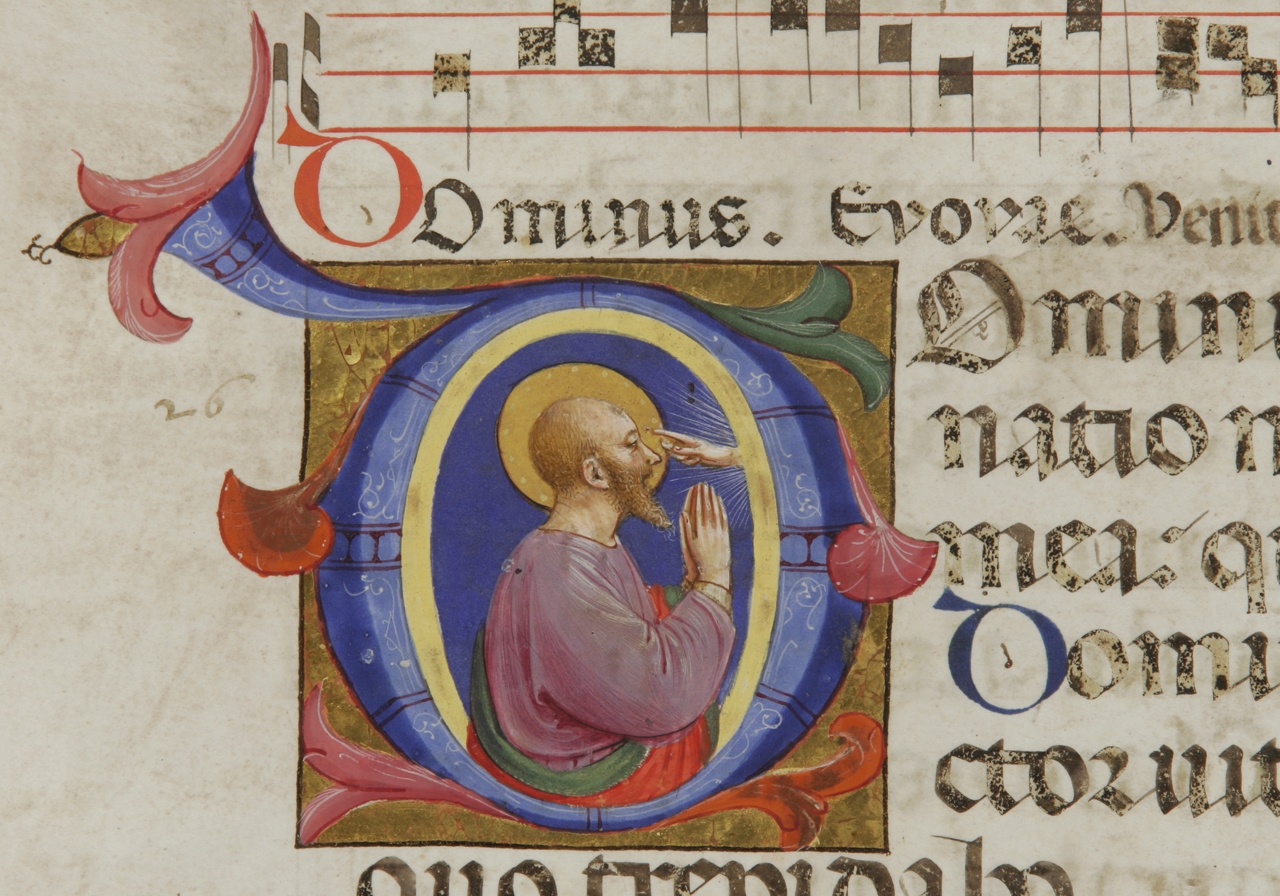 Dominus. Evovae. Venit
Domin
natio m
mea: q
Domi
ctor vit
26
quo trepidabo